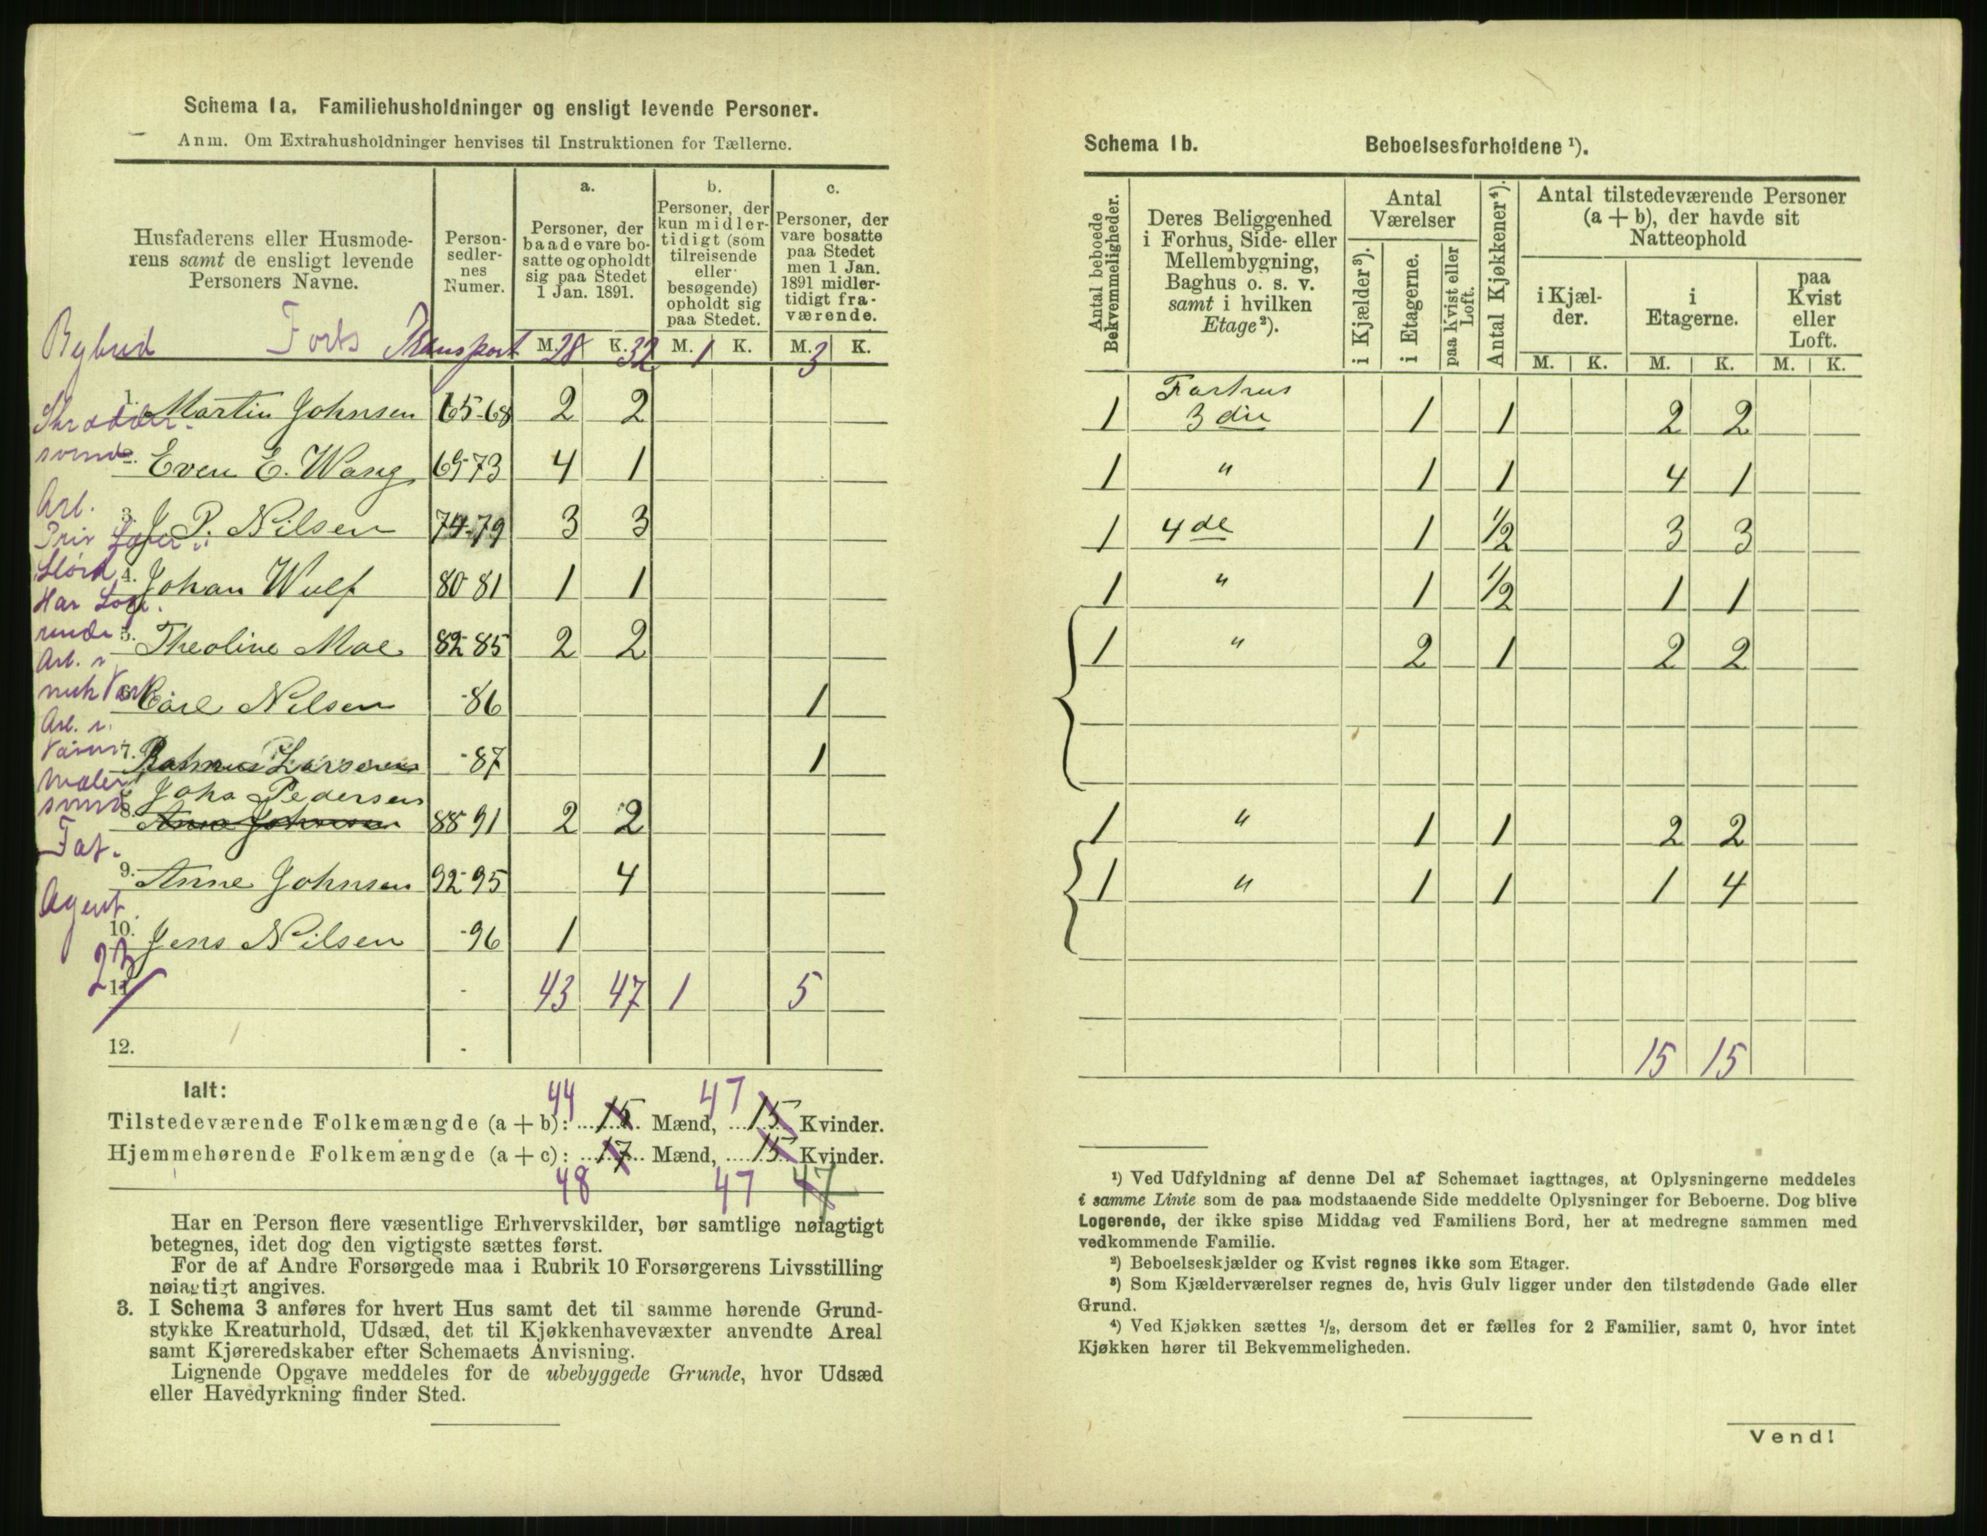 Schema 1a. Familiehusholdninger og ensligt levende Personer.
Anm. Om Extrahusholdninger henvises til Instruktionen for Tællerne.
Husfaderens eller Husmoderens samt de ensligt levende Personers Navne.
Personsedlernes Numer.
a. Personer, der baade vare bosatte og opholdt sig paa Stedet 1 Jan. 1891.
b. Personer, der kun midlertidigt (som tilreisende eller besøgende) opholdt sig paa Stedet.
c. Personer, der vare bosatte paa Stedet men 1 Jan. 1891 midlertidigt fraværende.
M. K. M. K. M. K.
Bybud Forts Transport 28 32 1 3
1. Martin Johnsen 65-68 2 2
2. Even E. Wang 69-73 4 1
3. J. P. Nilsen 74-79 3 3
4. Johan Wulf 80-81 1 1
5. Theoline Moe 82-85 2 2
6. Carl Nilsen -86 1
7. Rasmus Larsen -87 1
Johs Pedersen
8. Anne Johnsen 88-91 2 2
9. Anne Johnsen 92-95 4
10. Jens Nilsen -96 1
11. 43 47 1 5
12.
Arb.
Har
Arb.
Maler
Agent
Ialt:
44 47
Tilstedeværende Folkemængde (a + b): 15 Mænd, 15 Kvinder.
Hjemmehørende Folkemængde (a + c): 17 Mænd, 15 Kvinder.
48 47 47
Har en Person flere væsentlige Erhvervskilder, bør samtlige nøiagtigt
betegnes, idet dog den vigtigste sættes først.
For de af Andre Forsørgede maa i Rubrik 10 Forsørgerens Livsstilling
nøiagtigt angives.
3. I Schema 3 anføres for hvert Hus samt det til samme hørende Grund-
stykke Kreaturhold, Udsæd, det til Kjøkkenhavevæxter anvendte Areal
samt Kjøreredskaber efter Schemaets Anvisning.
Lignende Opgave meddeles for de ubebyggede Grunde, hvor Udsæd
eller Havedyrkning finder Sted.
Schema 1b. Beboelsesforholdene ¹).
Antal beboede Bekvemmeligheder.
Deres Beliggenhed i Forhus, Side- eller Mellembygning, Baghus o. s. v. samt i hvilken Etage²).
Antal Værelser
i Kjælder³).
i Etagerne.
paa Kvist eller Loft.
Antal Kjøkkener⁴).
Antal tilstedeværende Personer (a + b), der havde sit Natteophold
i Kjælder.
i Etagerne.
paa Kvist eller Loft.
M. K. M. K. M. K.
1 Forhus 3die 1 1 2 2
1 " 1 1 4 1
1 4de 1 1/2 3 3
1 " 1 1/2 1 1
1 " 2 1 2 2
1 " 1 1 2 2
1 " 1 1 1 4
15 15
¹) Ved Udfyldning af denne Del af Schemaet iagttages, at Oplysningerne meddeles
i samme Linie som de paa modstaaende Side meddelte Oplysninger for Beboerne. Dog blive
Logerende, der ikke spise Middag ved Familiens Bord, her at medregne sammen med
vedkommende Familie.
²) Beboelseskjælder og Kvist regnes ikke som Etager.
³) Som Kjælderværelser regnes de, hvis Gulv ligger under den tilstødende Gade eller
Grund.
⁴) Ved Kjøkken sættes 1/2, dersom det er fælles for 2 Familier, samt 0, hvor intet
Kjøkken hører til Bekvemmeligheden.
Vend!